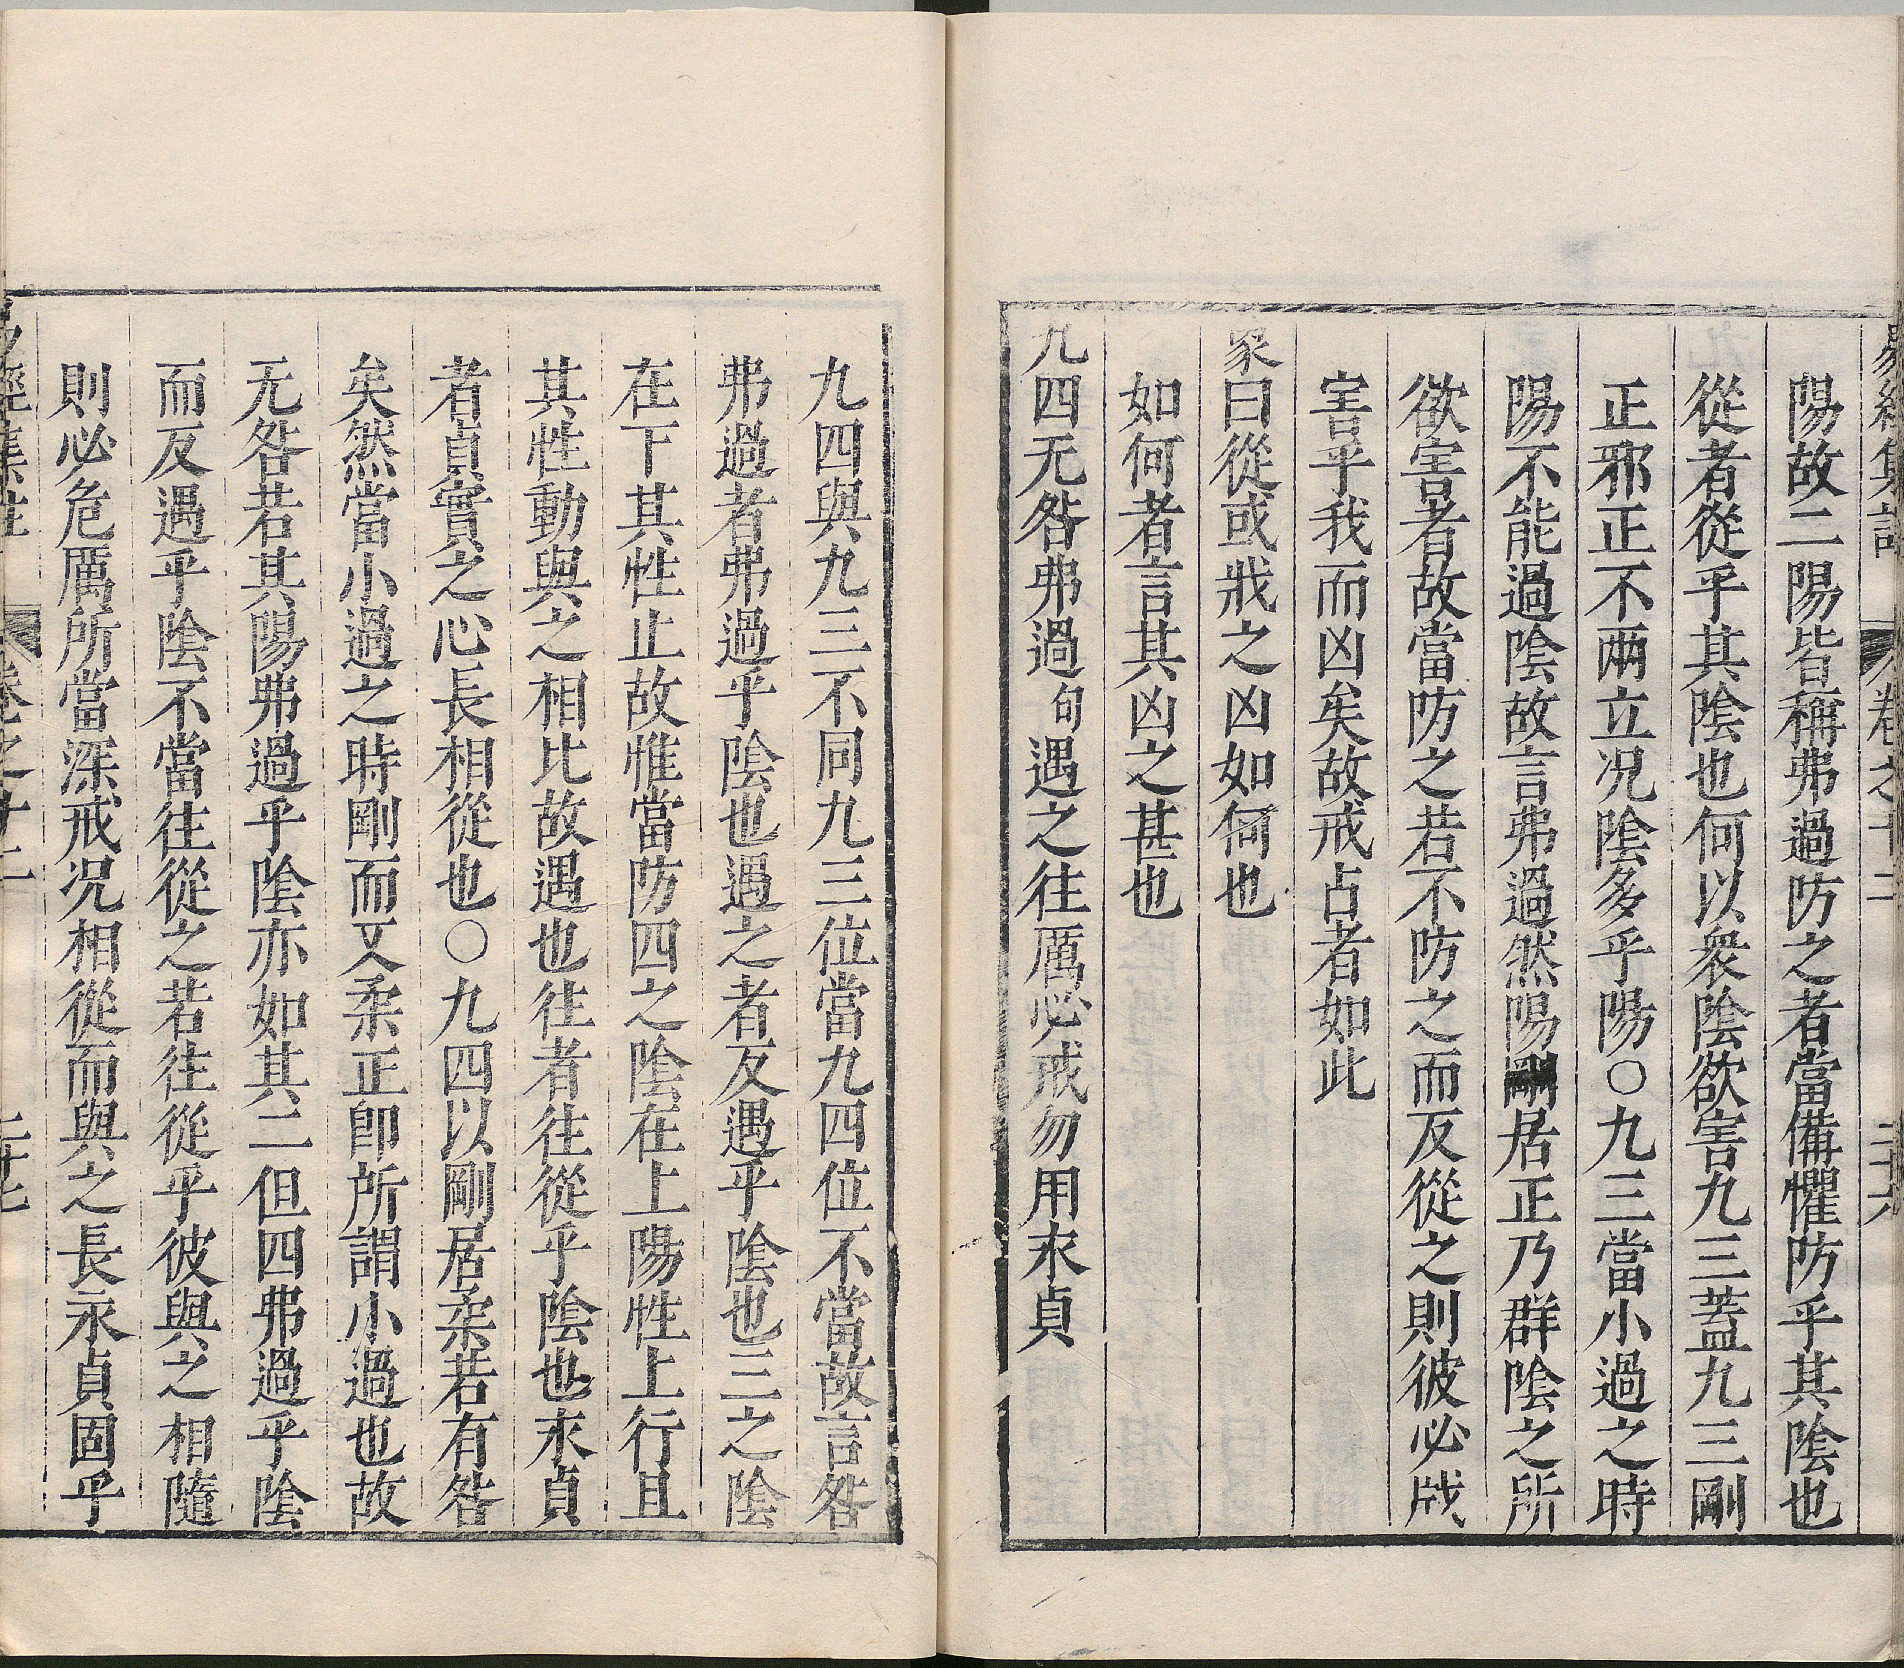 易經集註 卷之十二 二十六
陽故二陽皆稱弗過防之者當備懼防乎其陰也
從者從乎其陰也何以衆陰欲害九三蓋九三剛
正邪正不兩立况陰多乎陽〇九三當小過之時
陽不能過陰故言弗過然陽剛居正乃群陰之所
欲害者故當防之若不防之而反從之則彼必戕
害乎我而凶矣故戒占者如此
象曰從或戕之凶如何也
如何者言其凶之甚也
九四无咎弗過句遇之往厲必戒勿用永貞
九四與九三不同九三位當九四位不當故言咎
弗過者弗過乎陰也遇之者反遇乎陰也三之陰
在下其性止故惟當防四之陰在上陽性上行且
其性動與之相比故遇也往者往從乎陰也永貞
者貞實之心長相從也〇九四以剛居柔若有咎
矣然當小過之時剛而又柔正卽所謂小過也故
无咎若其陽弗過乎陰亦如其二但四弗過乎陰
而反遇乎陰不當往從之若往從乎彼與之相隨
則必危厲所當深戒况相從而與之長永貞固乎
易經集註 卷之十二 二十七